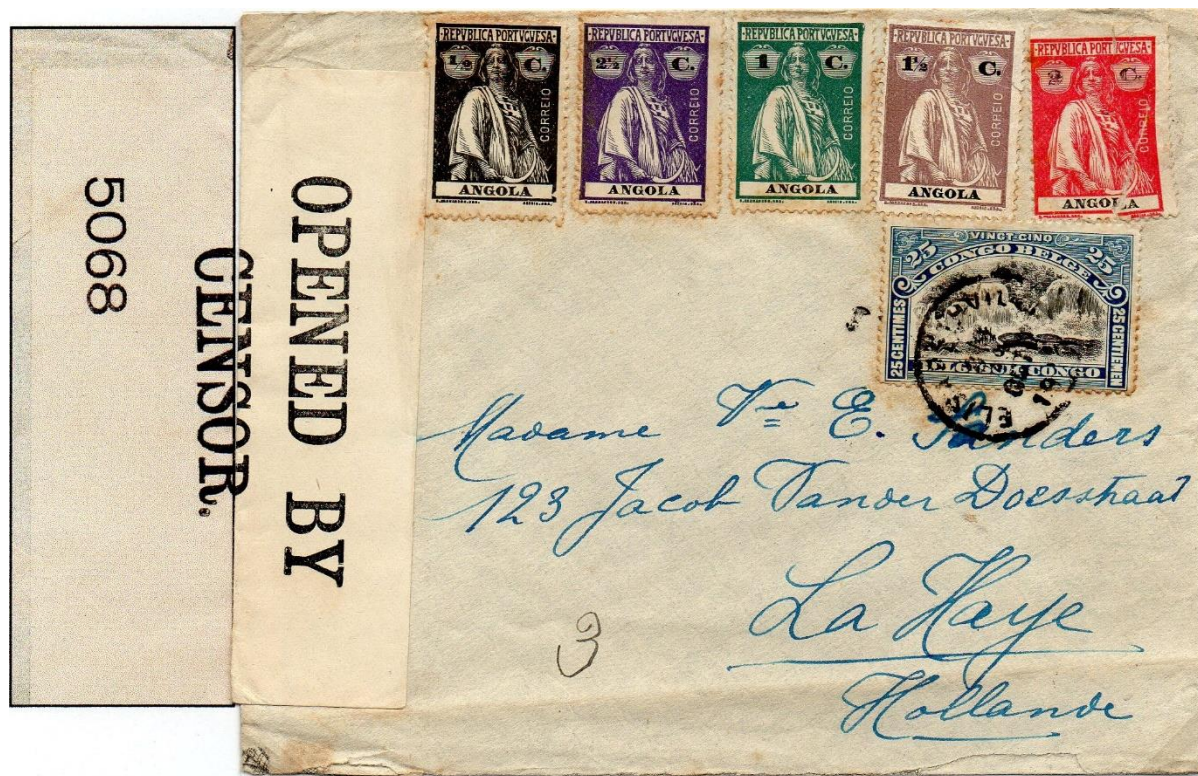 5068
OPENED BY
CENSOR.
REPVBLICA PORTVGVESA
½ C.
CORREIO
ANGOLA
REPVBLICA PORTVGVESA
2½ C.
CORREIO
ANGOLA
REPVBLICA PORTVGVESA
1 C.
CORREIO
ANGOLA
REPVBLICA PORTVGVESA
1½ C.
CORREIO
ANGOLA
REPVBLICA PORTVGVESA
2 C.
CORREIO
ANGOLA
25 VINGT-CINQ 25
CONGO BELGE
25 CENTIMES
25 CENTIEMEN
BELGISCH CONGO
Madame Vve E. Sanders
123 Jacob Vander Doesstraat
La Haye
Hollande
3